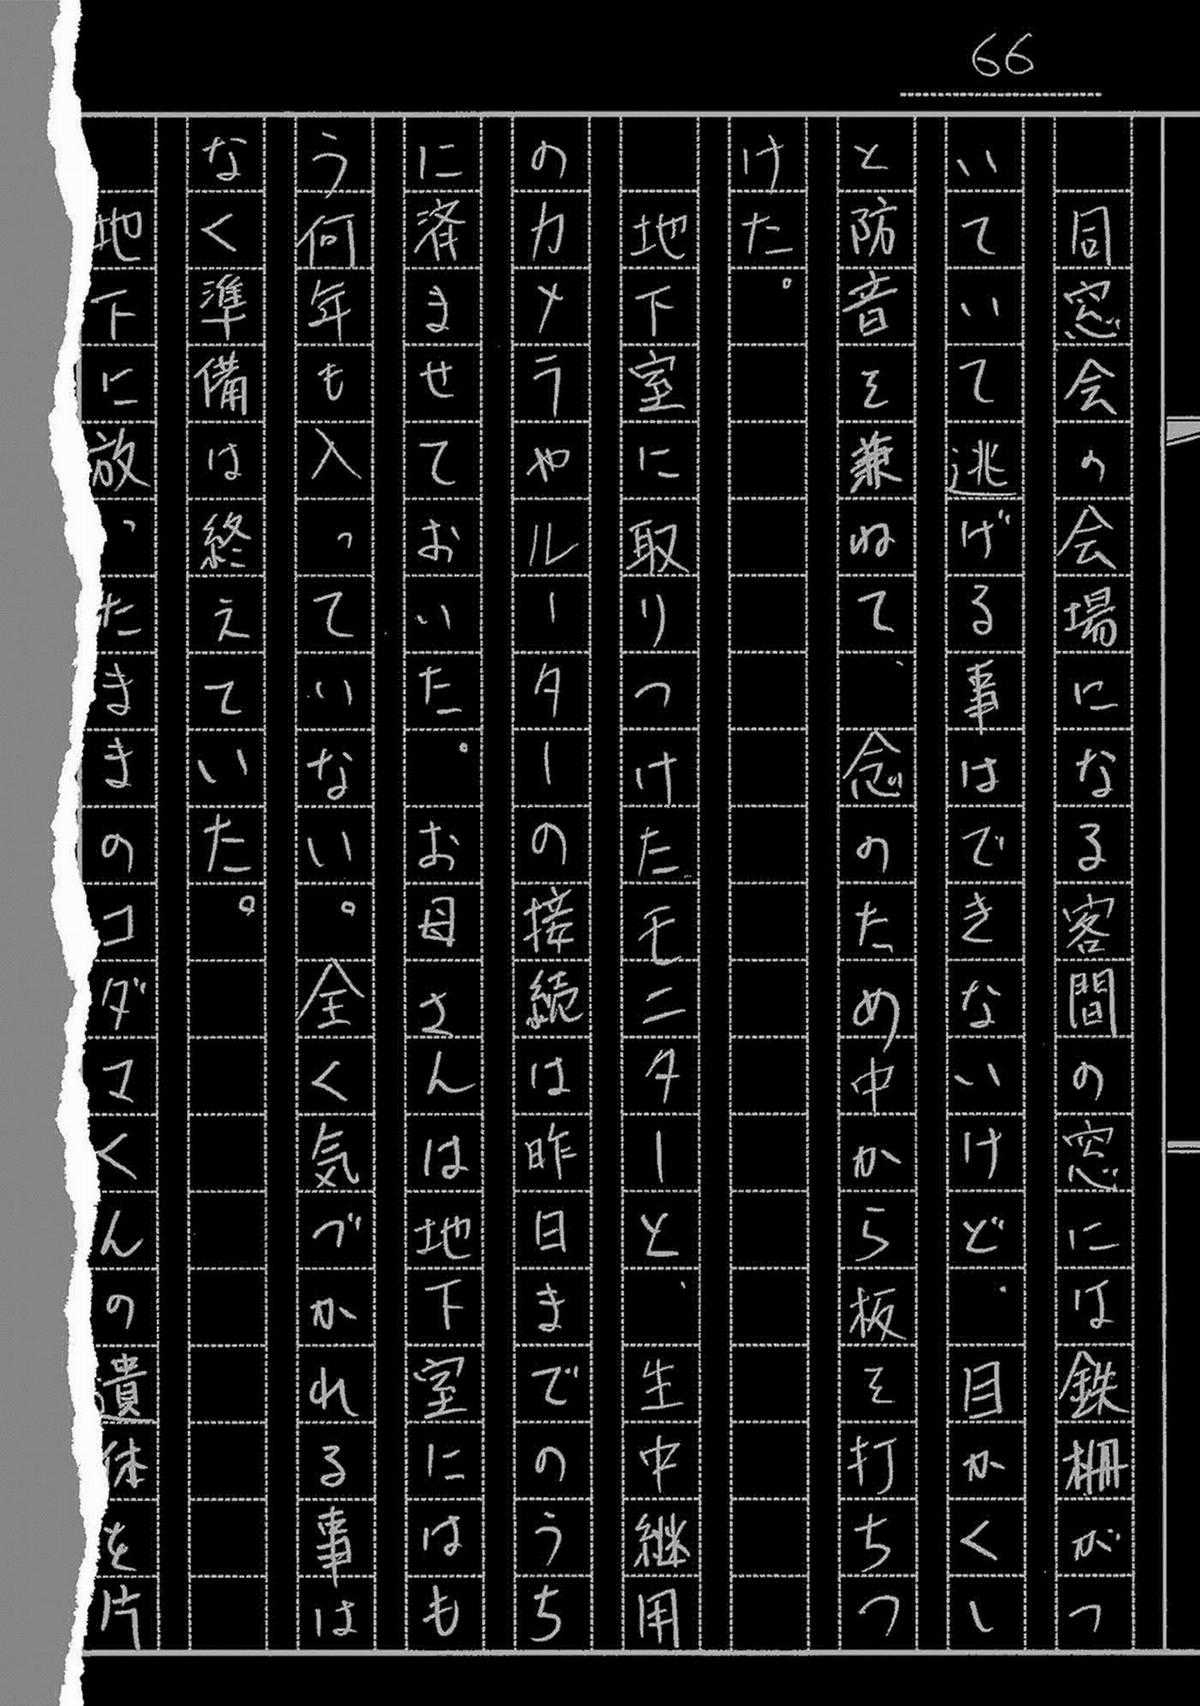 66
同窓会の会場になる客間の窓には鉄柵がつ
いていて逃げる事はできないけど、目かくし
と防音を兼ねて、念のため中から板を打ちつ
けた。
地下室に取りつけたモニターと、生中継用
のカメラやルーターの接続は昨日までのうち
に済ませておいた。お母さんは地下室にはも
う何年も入っていない。全く気づかれる事は
なく準備は終えていた。
地下に放ったままのコダマくんの遺体を片